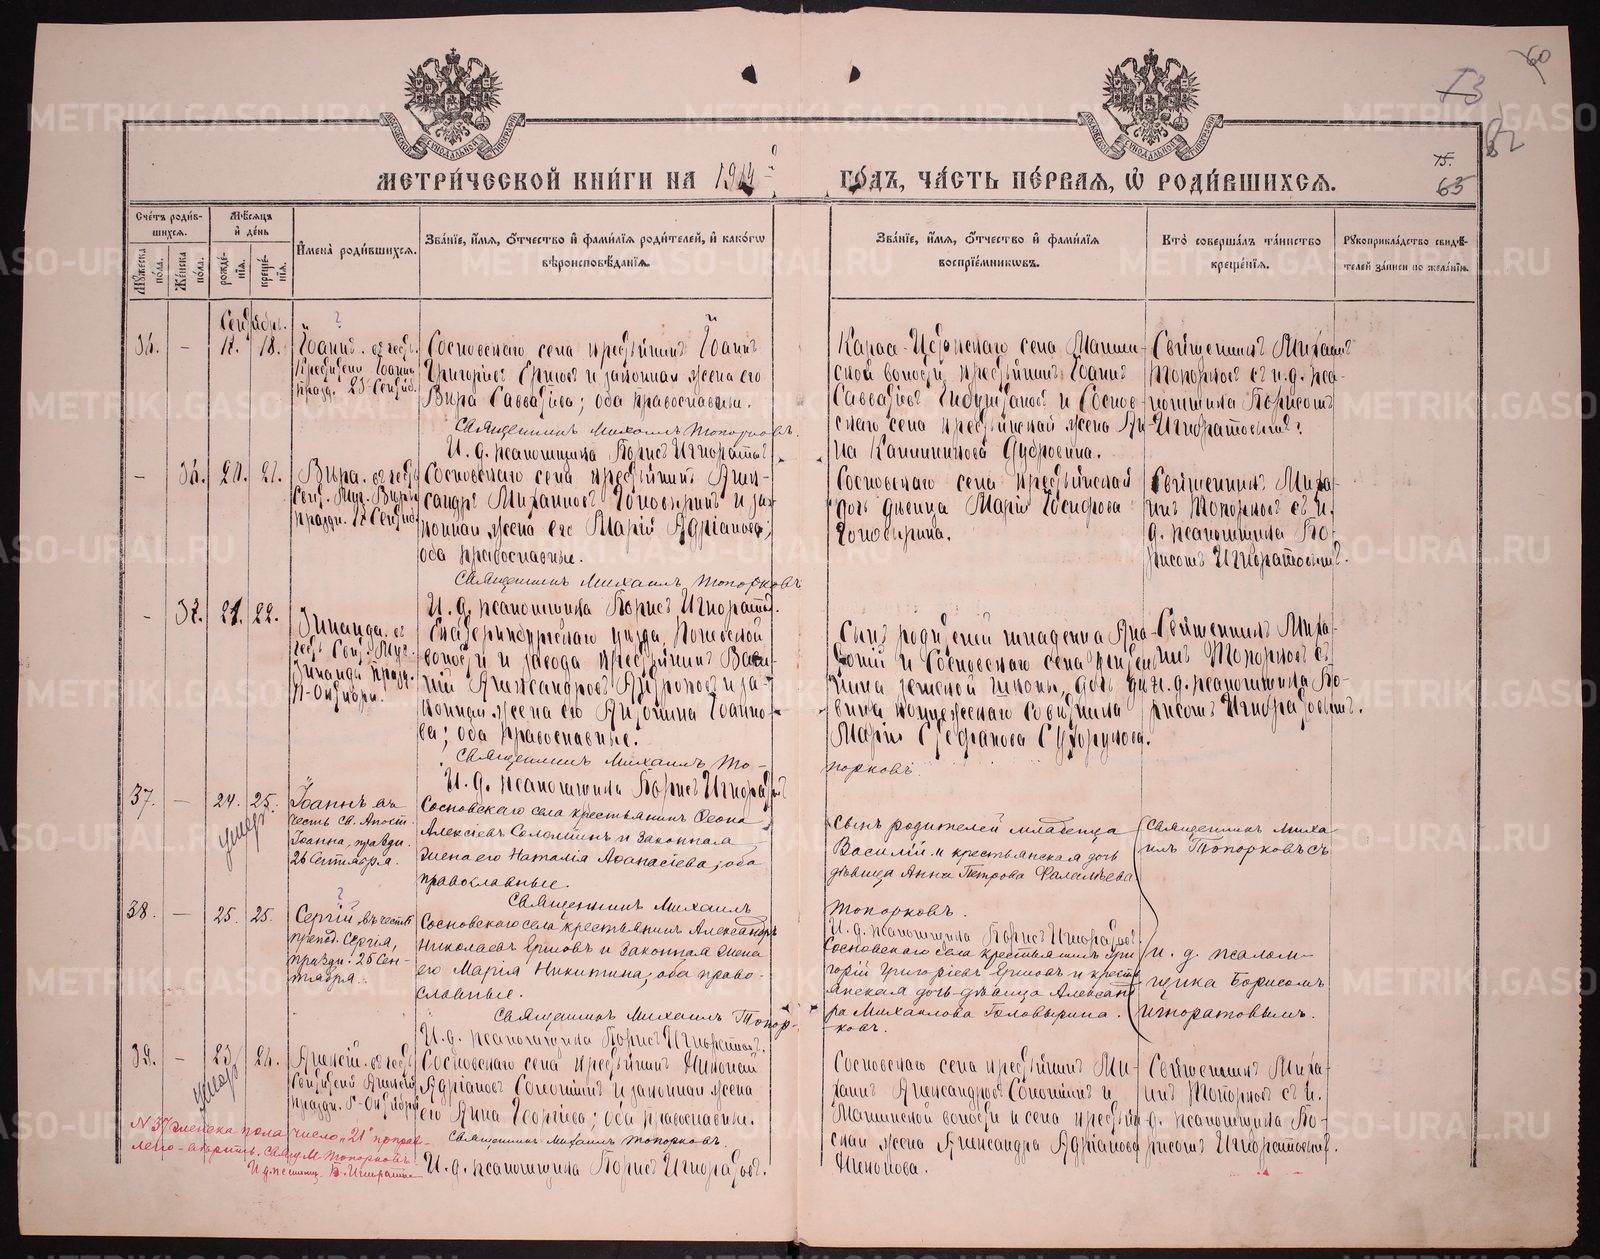 60
73
82
75.
65
МЕТРИ́ЧЕСКОЙ КНИ́ГИ НА 1914 ГО́ДЪ, ЧА́СТЬ ПЕ́РВАЯ, Ѽ РОДИ́ВШИХСЯ.
Сче́тъ роди́в-
шихся.
Мꙋ́жеска
по́ла.
Же́нска
по́ла.
Мѣ́сяцъ
и҆ де́нь
рожде́-
нїѧ.
креще́-
нїѧ.
И҆мена̀ роди́вшихся.
Зва́нїе, и҆́мѧ, ѻ҆́тчество и҆ фами́лїѧ роди́телей, и҆ како́гѡ
вѣроисповѣ́данїѧ.
Зва́нїе, и҆́мѧ, ѻ҆́тчество и҆ фами́лїѧ
воспрїе́мникѡвъ.
Кто̀ соверша́лъ та́инство
креще́нїѧ.
Рꙋкоприкла́дство свидѣ́-
телей за́писи по жела́нїю.
Сентябрь.
36. – 17. 18.
Іоаннъ. въ честь
Крестителя Іоанна
празд. 23 Сентяб.
Сосновскаго села крестьянинъ Іоаннъ
Григоріевъ Ершовъ и законная жена его
Вѣра Савватіева; оба православные.
Священникъ Михаилъ Топорковъ.
И. д. псаломщика Борисъ Игноратовъ
Савватіевъ
скаго села крестьянская жена Ан-
на Каллиникова Дубровина.
Священникъ Михаилъ
Топорковъ съ и. д. пса-
ломщика Борисомъ
Игноратовымъ.
– 36. 20. 21.
Вѣра. въ честь
Свят. Муч. Вѣры
праздн. 17 Сентяб.
Сосновскаго села крестьянинъ Алек-
сандръ Михаиловъ Головыринъ и за-
конная жена его Марія Адріанова;
оба православные.
Священникъ Михаилъ Топорковъ
И. д. псаломщика Борисъ Игноратов.
Сосновскаго села крестьянская
дочь дѣвица Марія Іосифова
Головырина.
Священникъ Миха-
илъ Топорковъ съ и.
д. псаломщика Бо-
рисомъ Игноратовымъ.
– 37. 21. 22.
Зинаида. въ
честь Свят. Муч.
Зинаиды празд.
11 Октября.
Екатеринбургскаго уѣзда,
волости и завода крестьянинъ Васи-
лій Александровъ и за-
конная жена его Антонина Іоанно-
ва; оба православные.
Священникъ Михаилъ То-
порковъ
И. д. псаломщика Борисъ Игноратов
Сынъ родителей младенца Ана-
толій и Сосновскаго села
земской школы, дочь дѣ-
вица совѣтника
Марія Стефанова Сухорукова.
Священникъ Миха-
илъ Топорковъ съ
и. д. псаломщика Бо-
рисомъ Игноратовымъ.
37. – 24. 25.
умеръ
Іоаннъ въ
честь Св. Апост.
Іоанна, праздн.
26 Сентября.
Сосновскаго села крестьянинъ Леонъ
Алексіевъ Соломинъ и законная
жена его Наталія Аѳанасіева; оба
православные.
Священникъ Михаилъ
Топорковъ.
И. д. псаломщика Борисъ Игноратов.
Сынъ родителей младенца
Василій и крестьянская дочь
дѣвица Анна Петрова Фалалѣева
Священникъ Миха
илъ Топорковъ съ
и. д. псалом-
щика Борисомъ
Игноратовымъ.
38. – 25. 25.
Сергій, въ честь
препод. Сергія,
праздн. 25 Сен-
тября.
Сосновскаго села крестьянинъ Александръ
Николаевъ Ершовъ и законная жена
его Марія Никитина; оба право-
славные.
Священникъ Михаилъ Топор-
ковъ.
И. д. псаломщика Борисъ Игноратов.
Сосновскаго села крестьянинъ Гри
горій Григоріевъ Ершовъ и кресть
янская дочь-дѣвица Александ
ра Михаилова Головырина.
39. – 23. 26.
умеръ
Алексій. въ честь
Святителя Алексія
праздн. 5 Октября
Сосновскаго села крестьянинъ Николай
Адріановъ Соломинъ и законная жена
его Анна Георгіева; оба православные.
Священникъ Михаилъ Топорковъ.
И. д. псаломщика Борисъ Игноратовъ.
Сосновскаго села крестьянинъ Ми-
хаилъ Александровъ Соломинъ и
волости и села крестьян
ская жена Александра Адріанова
Священникъ Миха-
илъ Топорковъ съ и.
д. псаломщика Бо-
рисомъ Игноратовымъ.
№ 37 женска пола число „21" поправ-
лено - вѣрить. Свящ М Топорковъ